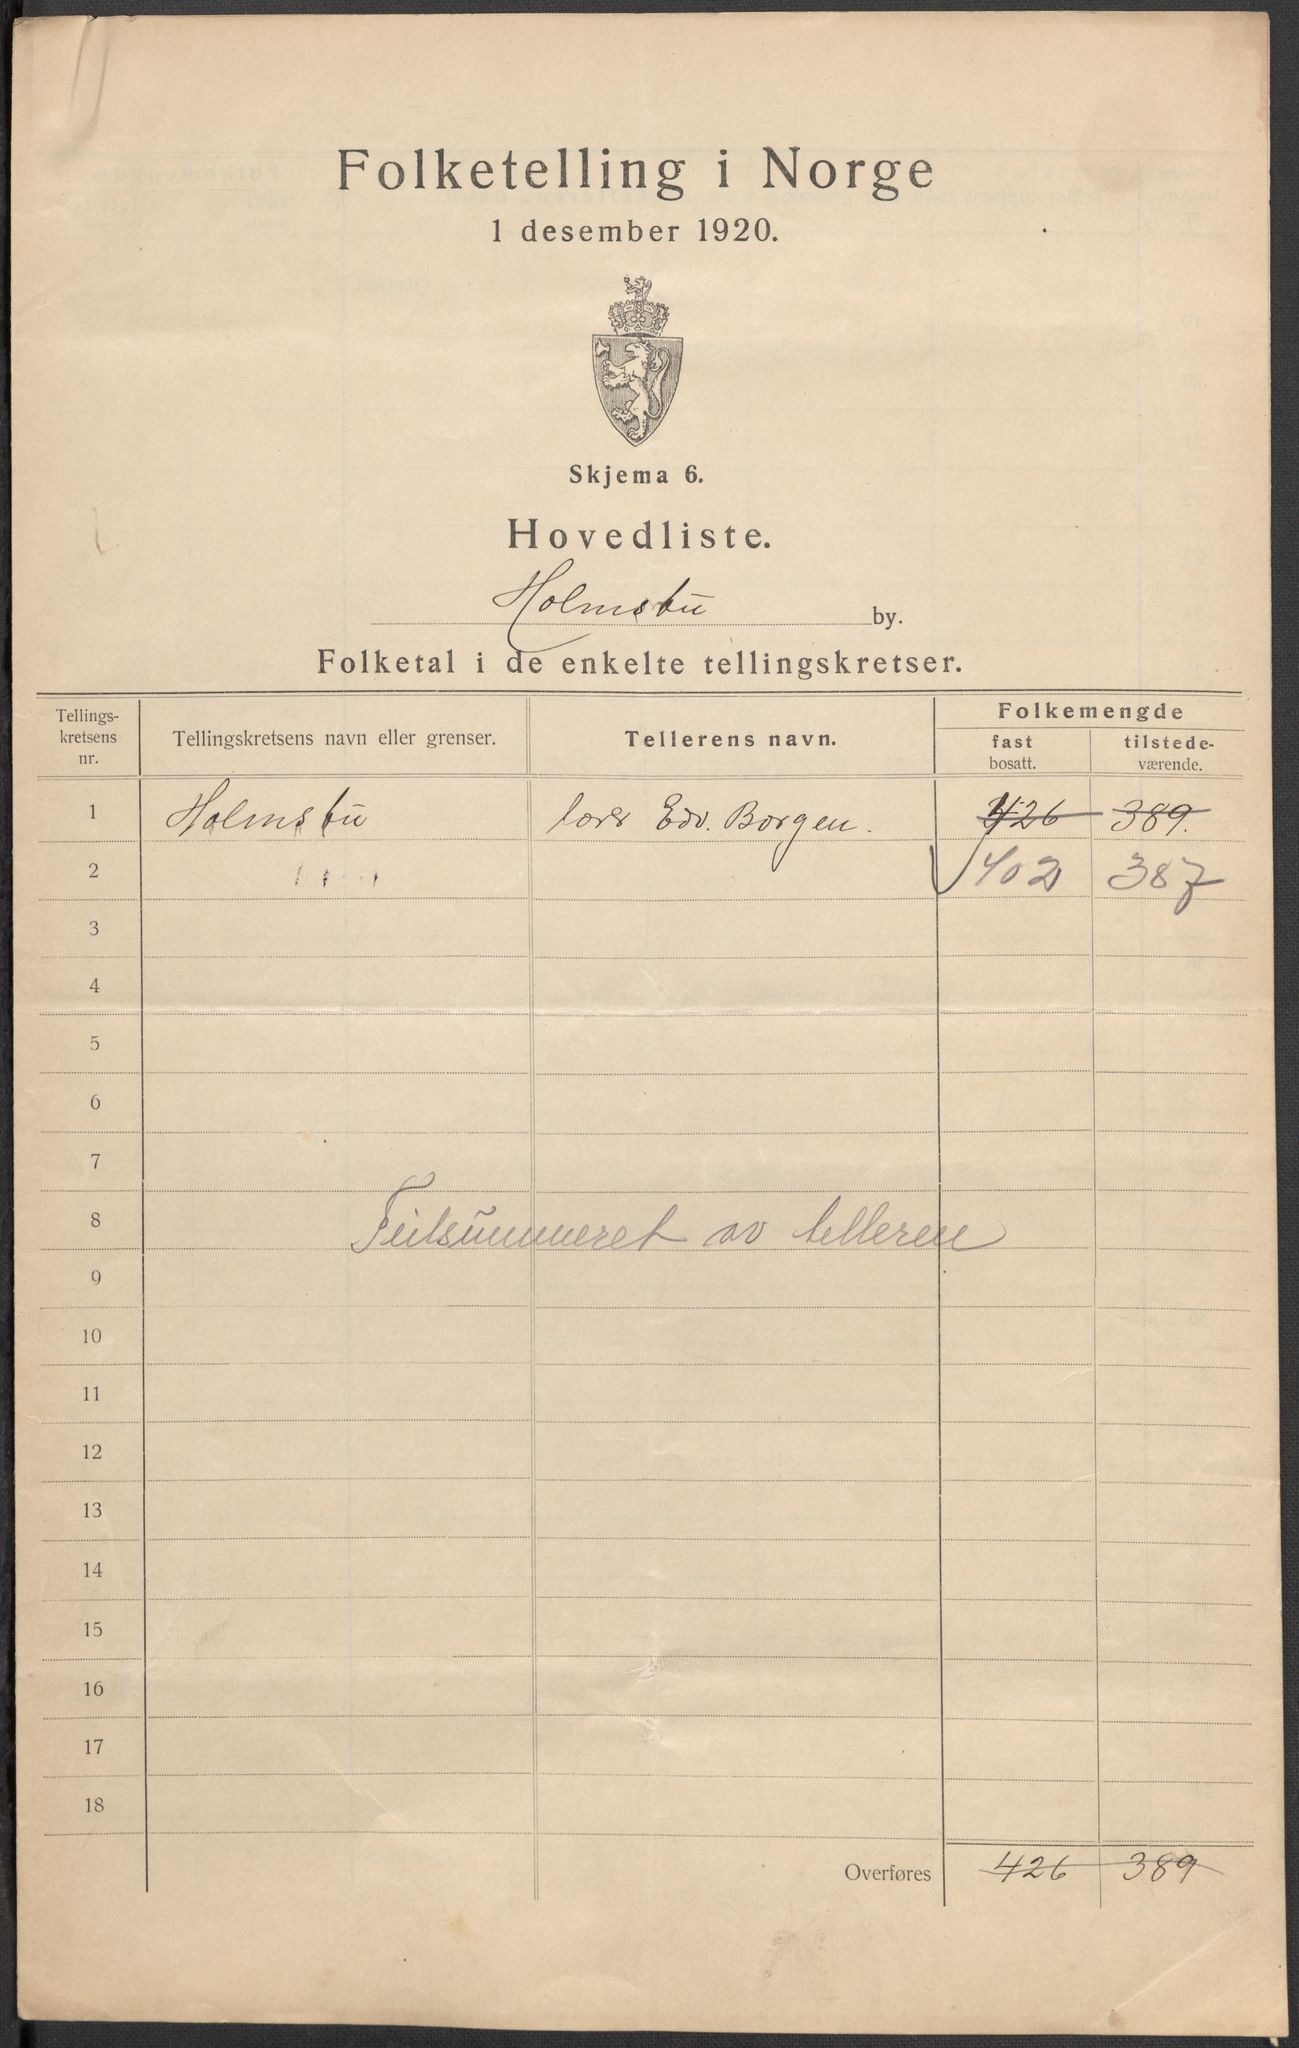 Folketelling i Norge
1 desember 1920.
Skjema 6.
Hovedliste.
Holmsbu by.
Folketal i de enkelte tellingskretser.
Tellings-
kretsens
nr.
Tellingskretsens navn eller grenser.
Tellerens navn.
Folkemengde
fast
bosatt.
tilstede-
værende.
1 Holmsbu Lars Edv. Borgen. 426 389.
2 402 387
3
4
5
6
7
8 Feilsummeret av telleren
9
10
11
12
13
14
15
16
17
18
Overføres 426 389